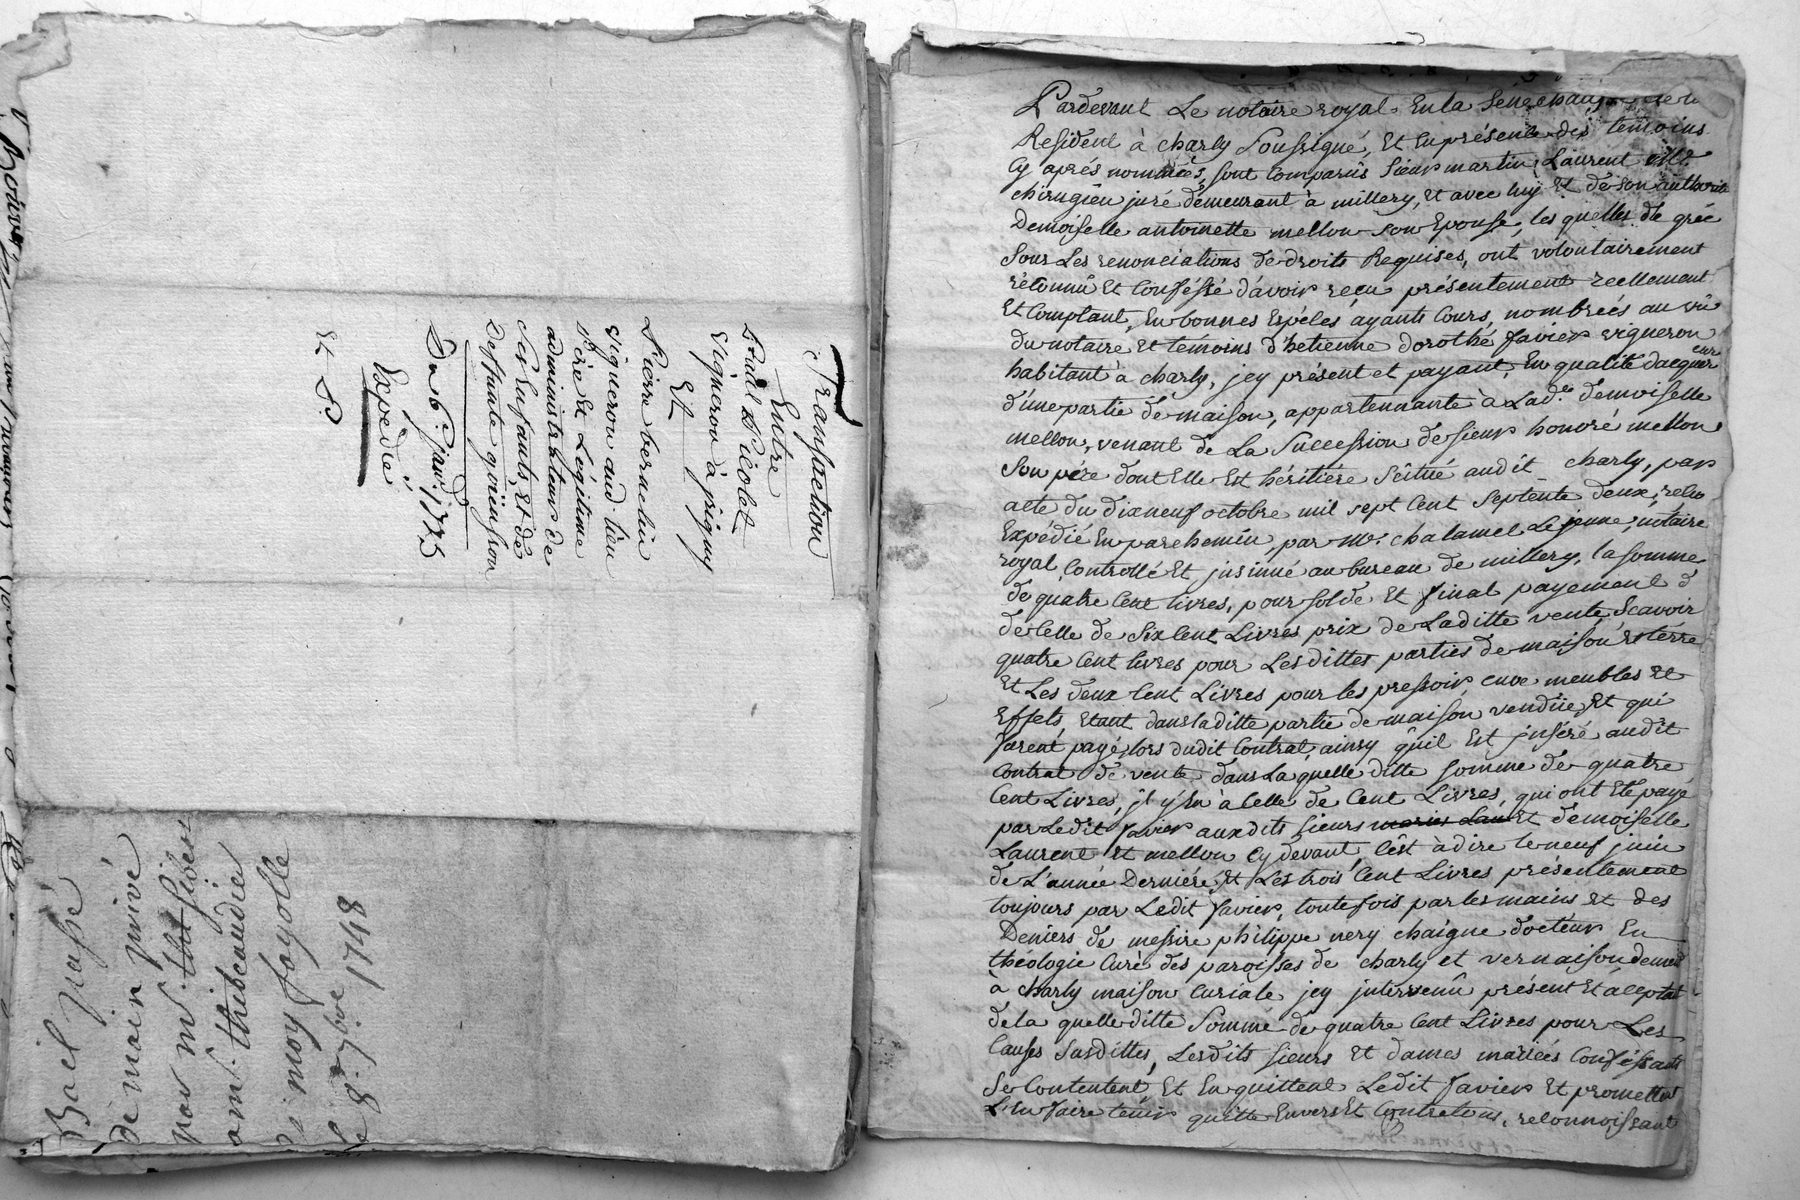 Transaction
Entre
Paul Picolet
Vigneron à jrigny
Et
Pierre bernelin
vigneron aud. lieu
père Et Légitime
administrateur de
Ses Enfants, Et de
Deffunte guienson
Du 6e. janv. 1775
Expedié
Et 8.
Bail passé
de main privé
par mr.
amt. thibeaudier
a moy fayolle
le 8e. 7bre 1748
Pardevant Le notaire royal En la Sénéchaussée
Résident à charly Soussigné, Et En présence des témoins
Cy aprés nommées, sont Comparûs Sieur martin Laurent Me.
chirugien juré demeurant à millery, Et avec luy Et de son authorité
Demoiselle antoinette mellon son Epouse, les quelles de gréé
Sous Les renonciations de droits Requises, ont volontairement
réconnû Et Conféssé d'avoir reçu présentement reellement
Et Comptant, En bonnes Espéces ayants Cours, nombreés au vû
du notaire Et témoins d'hetienne dorothé favier vigneron
habitant à charly, jcy présent et payant, En qualité dacquereur
d'une partie de maison, appartennante à Lade. demoiselle
mellon, venant de La Succession de sieur honoré mellon
Son pére dont Elle Est héritiére Scitué audit charly, par
acte du dixneuf octobre mil sept Cent Septente deux, reçu
Expédié En parchemin, par me. chalamel Le jeune, notaire
royal, Controllé Et jnsinué au bureau de millery, la somme
de quatre Cent livres, pour solde Et final payement d
de Celle de Six Cent Livres prix de Laditte vente, Scavoir
quatre Cent livres pour Lesdittes parties de maison Et térre
Et Les deux Cent Livres pour les pressoir, cuve meubles Et
Effets, Etant dans laditte partie de maison vendüe, Et qui
furent payé, lors dudit Contrat, ainsy qûil Est jnséré audit
Contrat de vente, dans La quelle ditte somme de quatre
Cent Livres, jl y En à Celle de Cent Livres, qui ont Eté payé
par Ledit favier auxdits sieurs Et demoiselle
Laurent Et mellon Cy devant, Cêst à dire le neuf juin
de L'année Derniére, Et Les trois Cent Livres présentement
toujours par Ledit favier, toutefois par les mains Et des
Deniers de messire philippe nery chaigne docteur En
théologie Curé des paroisses de charly et vernaison demeut
à charly maison Curiale jcy jntervenû présent Et aceptat
de la quelle ditte Somme de quatre Cent Livres pour Les
Causes Susdittes, Lesdits sieurs Et dames mariées Conféssants
Se Contentent, Et En quittent Ledit favier Et promettent
L'en faire tenir quitte Envers Et Contre tous, reconnoissant